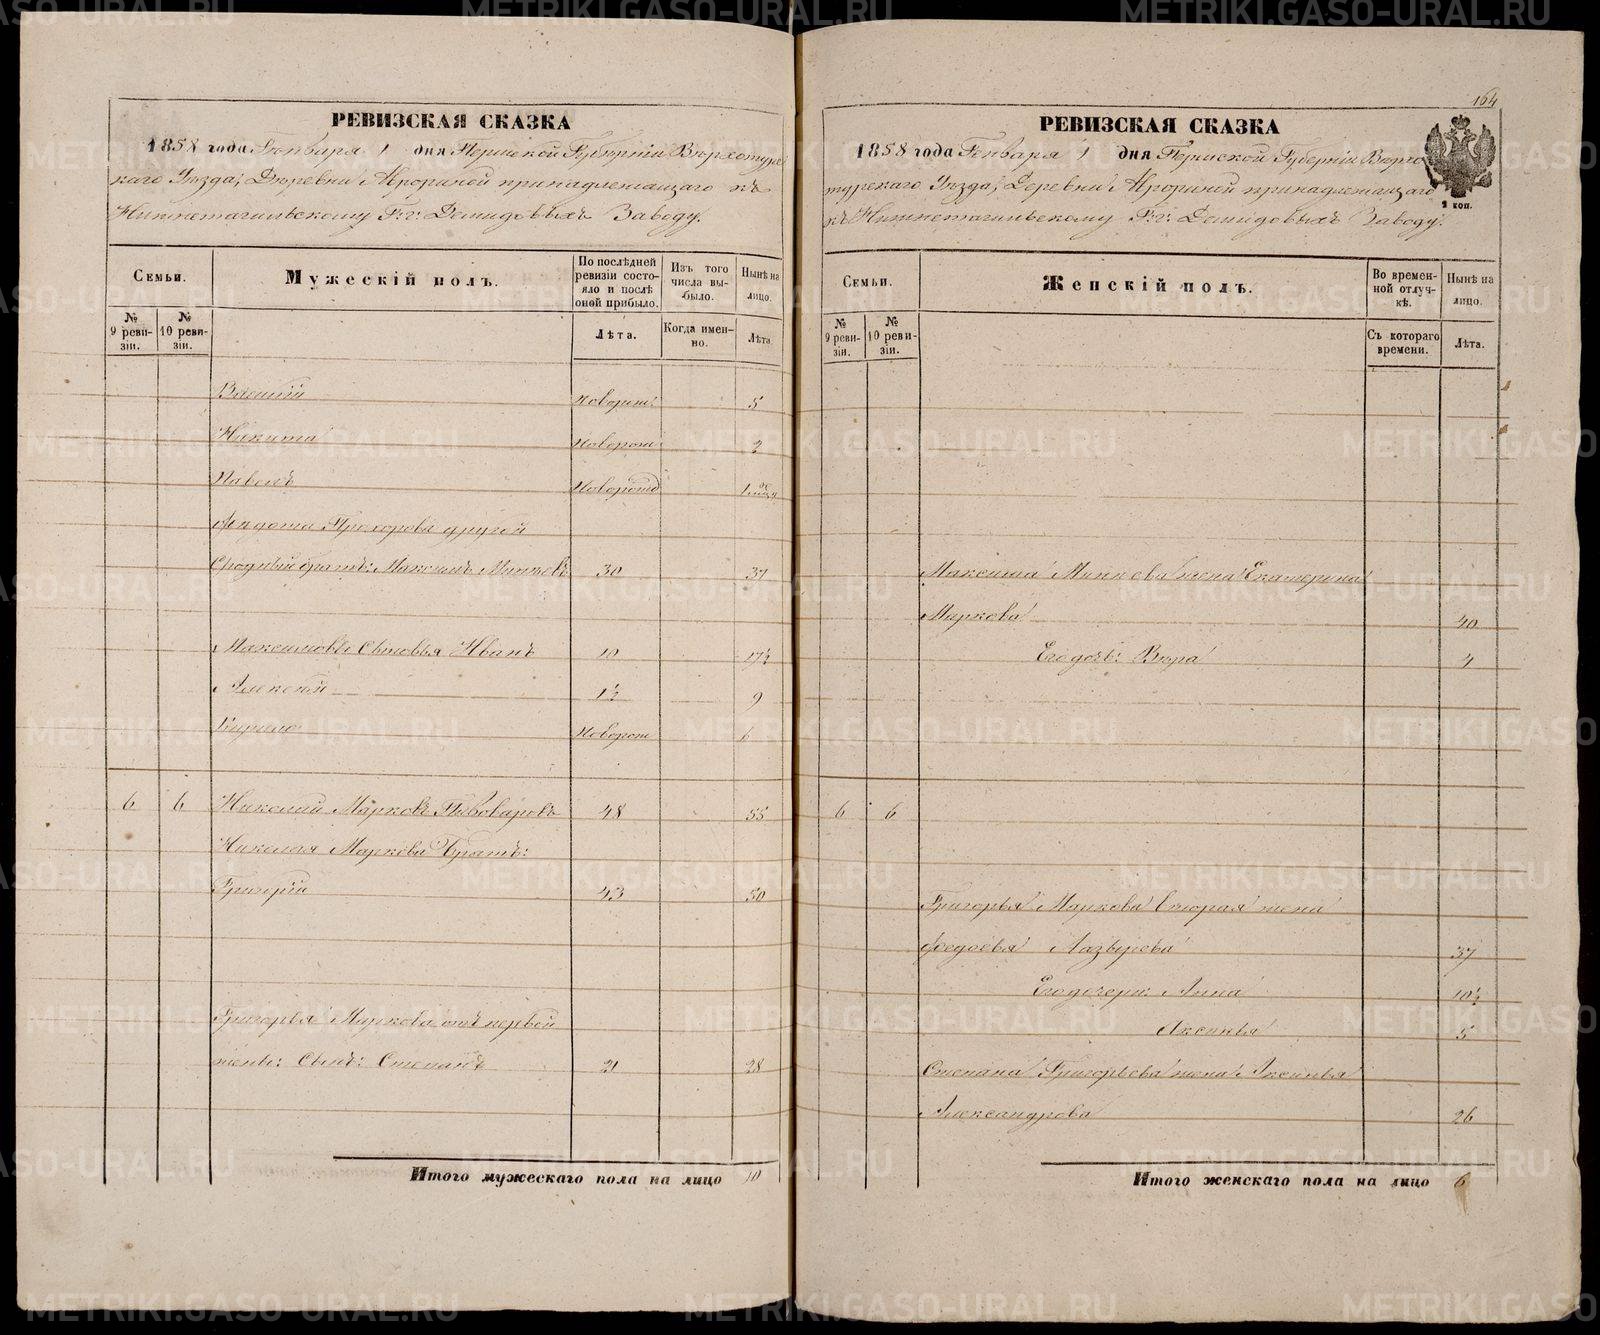 РЕВИЗСКАЯ СКАЗКА
1858 года Генваря 1 дня Пермской Губерніи Верхотурс
каго Уѣзда, Деревни принадлежащаго къ
Нижнетагильскому Г.г. Демидовыхъ Заводу.
Семьи.
Мужескій полъ.
По послѣдней ревизіи состояло и послѣ оной прибыло.
Изъ того числа выбыло.
Нынѣ на лицо.
№ 9 ревизіи.
№ 10 ревизіи.
Лѣта.
Когда именно.
Лѣта.
Василій новорож: 5
Никита новорож 2
Павелъ новорожд 1
Федота Прохорова другой
Сродный братъ: Максимъ 30 37
Максимовы Сыновья Иванъ 10 17½
Алексей 1½ 9
Кирило новорож 6
6 6 Николай Марковъ Пивоваровъ 48 55
Николая Маркова Братъ:
Григорій 43 50
Григорья Маркова отъ первой
жены: Сынъ: Степанъ 21 28
Итого мужескаго пола на лицо 10
164
РЕВИЗСКАЯ СКАЗКА
1858 года Генваря 1 дня Пермской Губерніи Верхо
турскаго Уѣзда, Деревни принадлежащаго
къ Нижнетагильскому Г.г. Демидовыхъ Заводу.
2 коп.
Семьи.
Женскій полъ.
Во временной отлучкѣ.
Нынѣ на лицо.
№ 9 ревизіи.
№ 10 ревизіи.
Съ котораго времени.
Лѣта.
Максима жена Екатерина
Маркова 40
Его дочь: Вера 4
6 6
Григорья Маркова вторая жена
Федосья Лазырева 37
Его дочери: Анна 10½
Аксинья 5
Степана Григорьева жена Аксинья
Александрова 26
Итого женскаго пола на лицо 6
METRIKI.GASO-URAL.RU